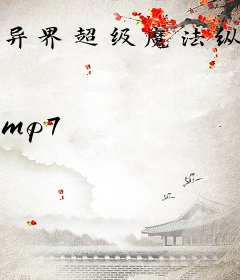 异界超级魔法纵
mp7